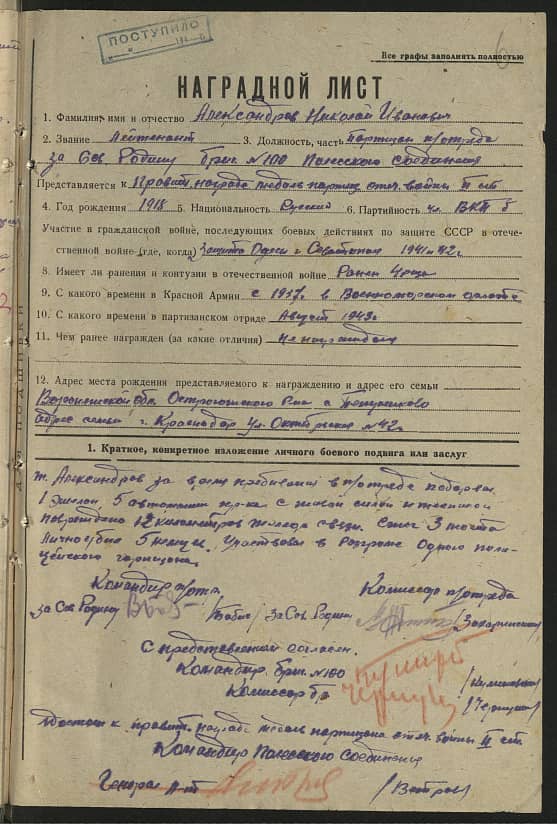 ПОСТУПИЛО
6
Все графы заполнять полностью
НАГРАДНОЙ ЛИСТ
1. Фамилия, имя и отчество Александров Николай Иванович
2. Звание Лейтенант 3. Должность, часть Партизан п/отряда
за Сов Родину бриг. №100 Полесского Соединения
Представляется к Правит. награде медаль партиз. отеч. войны II ст
4. Год рождения 1918 5. Национальность Русский 6. Партийность чл. ВКП б
Участие в гражданской войне, последующих боевых действиях по защите СССР в отече-
ственной войне (где, когда) Защита Одессы и Севастополя 1941 и 42 г.
8. Имеет ли ранения и контузии в отечественной войне Ранен
9. С какого времени в Красной Армии с 1937 в Военноморском флоте
10. С какого времени в партизанском отряде Август 1943г.
11. Чем ранее награжден (за какие отличия) Не награждался
12. Адрес места рождения представляемого к награждению и адрес его семьи
Воронежской обл. Острогожского р-на с.
адрес семьи г. Краснодар ул. Октябрьская №42
1. Краткое, конкретное изложение личного боевого подвига или заслуг
т. Александров за время пребывания в п/отряде подорвал
1 эшелон 5 автомашин пр-ка с живой силой и техникой
повреждено 12 километров телефо связи. Сжег 3 моста
Лично убил 5 немцев. Участвовал в Разгроме Одного поли-
цейского гарнизона.
Командир п/отр Комиссар п/отряда
за Сов Родину /Бабич/ За Сов Родину
С представлением согласен.
Командир бриг. №100
Комиссар бр
Достоин к правит. награде медаль партизана отеч. войны II ст.
Командир Полесского Соединения
Генерал м-р /Ветров/